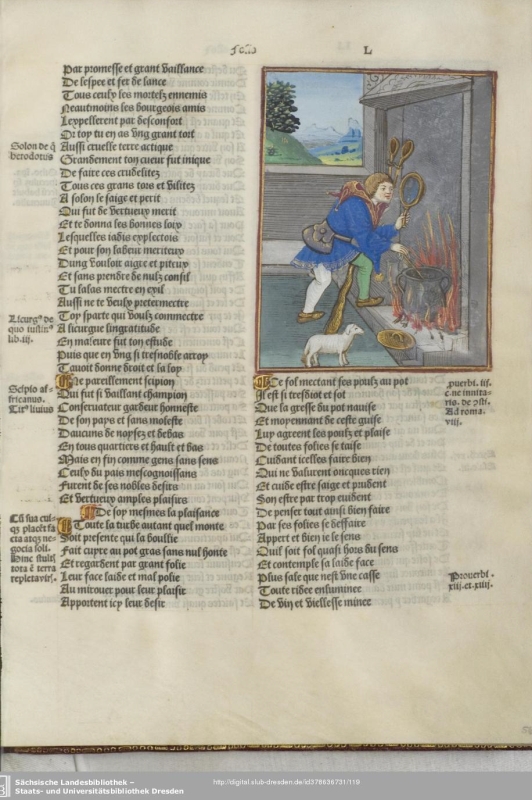 L
Par promesse et grant vaillance
De lespee et fer de lance
Tous ceulx les mortelz ennemis
Neantmoins les bourgeois amis
Lexpellerent par desconfort
Or toy tu en as ung grant tort
Aussi cruelle terre actique
Grandement ton cueur fut inique
De faire ces crudelitez
Tous ces grans tors et vilitez
A solon le saige et perit
Qui fut de vertueux merit
Et te donna les bonnes loix
Lesquelles iadis exploctois
Et pour son labeur meriteux
Dung vouloir aigre et piteux
Et sans prendre de nulz conseil
Tu lassas mectre en exil
Aussi ne te veulx pretermectre
Toy sparte qui voulz commectre
A licurgue lingratitude
En maleure fut ton estude
Puis que en ung si tresnoble arroy
Tavoit donne droit et la loy
Ne pareillement scipion
Qui fut si vaillant champion
Conservateur gardeur honneste
De son pays et sans moleste
Daucuns de noyses et debas
En tous quartiers et hault et bas
Mais en fin comme gens sans sens
Ceulx du pais mescognoissans
Furent de ses nobles desirs
Et vertueux amples plaisirs
De soy mesmes la plaisance
Toute la turbe autant quel monte
Soit presente qui la boullie
Fait cuyre au pot gras sans nul honte
Et regardent par grant folie
Leur face laide et mal polie
Au mirouer pour leur plaisir
Apportent icy leur desir
Solon de q̃
herodotus
Licurgꝰ de
quo iustinꝰ
lib. iij.
Scipio af=
fricanus.
Titꝰ liuius
Cũ sua cui=
qз placẽt fa
cta atqз ne=
gocia soli.
Hinc stultis
tota ẽ terra
Ce fol mectant ses poulx au pot
Il est si tresdiot et sot
Que la gresse du pot nauise
Et moyennant de ceste guise
Luy agreent les poulx et plaise
De toutes folies se taise
Cuidant icelles faire bien
Qui ne valurent oncques rien
Et cuide estre saige et prudent
Son estre par trop euident
De penser tout ainsi bien faire
Par ses folies se deffaire
Appert et bien ie le sens
Quil soit fol quasi hors du sens
Et contemple sa laide face
Plus sale que nest une casse
Toute ridee enluminee
De vin et viellesse minee
Ad roma.
viij.
Prouerbi.
xiij. et. xiiij.
Sächsische Landesbibliothek –
Staats- und Universitätsbibliothek Dresden
http://digital.slub-dresden.de/id378636731/119